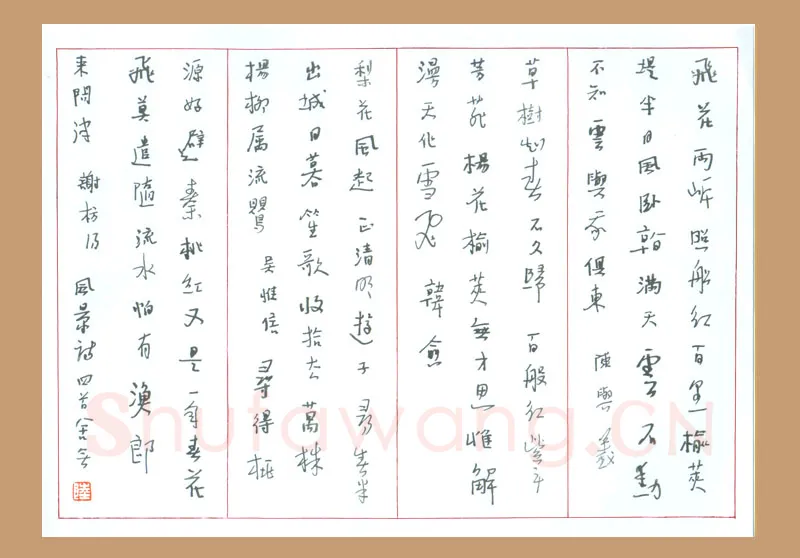 飛花兩岸照船紅百里榆莢
堤半日風臥看滿天雲不動
不知雲與我俱東 陳與義
草樹知春不久歸 百般紅紫斗
芳菲楊花榆莢無才思惟解
漫天化雪飛 韓愈
梨花風起正清明遊子尋春半
出城日暮笙歌收拾去萬株
楊柳屬流鶯 吳惟信 尋得桃
源好避秦桃紅又是一年春花
飛莫遣隨流水怕有漁郎
來問津 謝枋得 風景詩四首
陸
Shufawang.CN